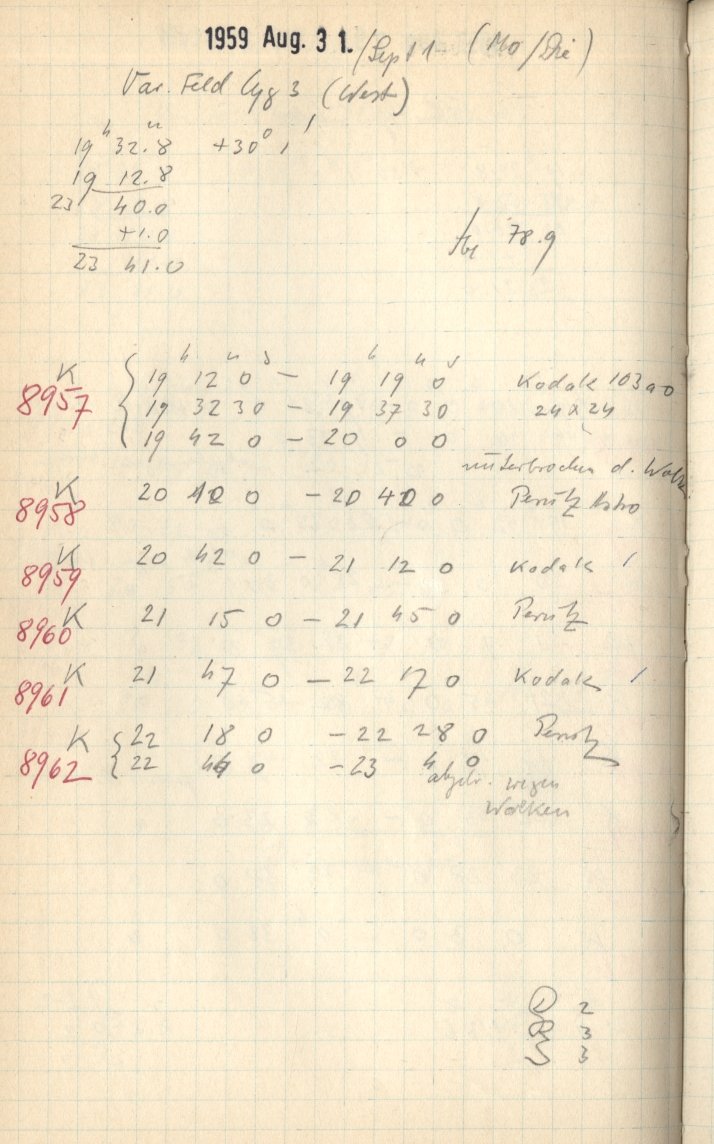 1959 Aug. 31. / Sept 1 (Mo/Die)
Var. Feld Cyg 3 (West)
19 h 32.8 m +30° 1'
19 12.8
23 40.0
+1.0
23 41.0
78.9
K 8957 { 19 h 12 m 0 s – 19 h 19 m 0 s Kodak 103a0
19 32 30 – 19 37 30 24x24
19 42 0 – 20 0 0
unterbrochen d. Wolken
K 8958 20 10 0 – 20 40 0 Perutz Astro
K 8959 20 42 0 – 21 12 0 Kodak /
K 8960 21 15 0 – 21 45 0 Perutz
K 8961 21 47 0 – 22 17 0 Kodak /
K 8962 { 22 18 0 – 22 28 0 Perutz
22 44 0 – 23 4 0
abgebr. wegen
Wolken
2
3
S 3